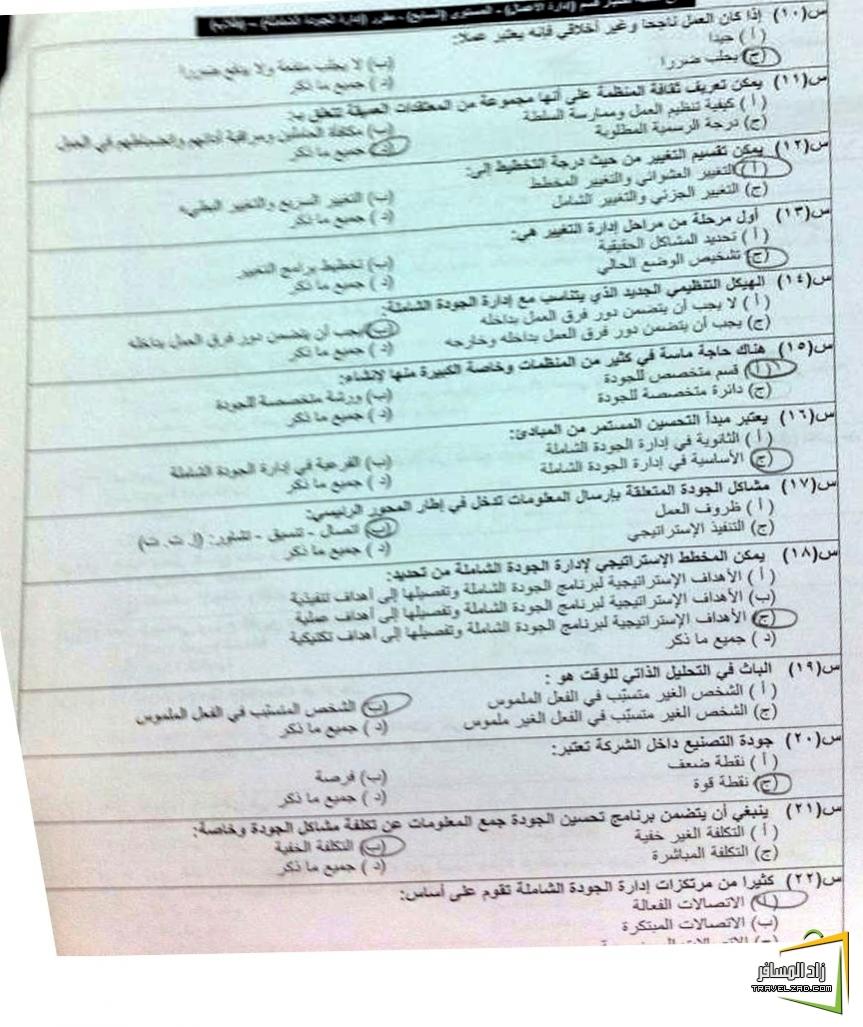 قسم (إدارة الأعمال) - المستوى (السابع) - مقرر (إدارة الجودة الشاملة) -
س(١٠) إذا كان العمل ناجحا وغير أخلاقي فإنه يعتبر عملا:
( أ ) جيدا
(ب) لا يجلب منفعة ولا يدفع ضررا
(ج) يجلب ضررا
( د ) جميع ما ذكر
س(١١) يمكن تعريف ثقافة المنظمة على أنها مجموعة من المعتقدات العميقة تتعلق بـ:
( أ ) كيفية تنظيم العمل وممارسة السلطة
(ب) مكافأة العاملين ومراقبة أدائهم وانضباطهم في العمل
(ج) درجة الرسمية المطلوبة
( د ) جميع ما ذكر
س(١٢) يمكن تقسيم التغيير من حيث درجة التخطيط إلى:
( أ ) التغيير العشوائي والتغيير المخطط
(ب) التغيير السريع والتغيير البطيء
(ج) التغيير الجزئي والتغيير الشامل
( د ) جميع ما ذكر
س(١٣) أول مرحلة من مراحل إدارة التغيير هي:
( أ ) تحديد المشاكل الحقيقية
(ب) تخطيط برامج التغيير
(ج) تشخيص الوضع الحالي
( د ) جميع ما ذكر
س(١٤) الهيكل التنظيمي الجديد الذي يتناسب مع إدارة الجودة الشاملة:
( أ ) لا يجب أن يتضمن دور فرق العمل بداخله
(ب) يجب أن يتضمن دور فرق العمل بداخله
(ج) يجب أن يتضمن دور فرق العمل بداخله وخارجه
( د ) جميع ما ذكر
س(١٥) هناك حاجة ماسة في كثير من المنظمات وخاصة الكبيرة منها لإنشاء:
( أ ) قسم متخصص للجودة
(ب) ورشة متخصصة للجودة
(ج) دائرة متخصصة للجودة
( د ) جميع ما ذكر
س(١٦) يعتبر مبدأ التحسين المستمر من المبادئ:
( أ ) الثانوية في إدارة الجودة الشاملة
(ب) الفرعية في إدارة الجودة الشاملة
(ج) الأساسية في إدارة الجودة الشاملة
( د ) جميع ما ذكر
س(١٧) مشاكل الجودة المتعلقة بإرسال المعلومات تدخل في إطار المحور الرئيسي:
( أ ) ظروف العمل
(ب) اتصال - تنسيق - تشاور: (إ. ت. ت)
(ج) التنفيذ الإستراتيجي
( د ) جميع ما ذكر
س(١٨) يمكن المخطط الإستراتيجي لإدارة الجودة الشاملة من تحديد:
( أ ) الأهداف الإستراتيجية لبرنامج الجودة الشاملة وتفصيلها إلى أهداف تنفيذية
(ب) الأهداف الإستراتيجية لبرنامج الجودة الشاملة وتفصيلها إلى أهداف عملية
(ج) الأهداف الإستراتيجية لبرنامج الجودة الشاملة وتفصيلها إلى أهداف تكتيكية
( د ) جميع ما ذكر
س(١٩) الباث في التحليل الذاتي للوقت هو :
( أ ) الشخص الغير متسبّب في الفعل الملموس
(ب) الشخص المتسبّب في الفعل الملموس
(ج) الشخص الغير متسبّب في الفعل الغير ملموس
( د ) جميع ما ذكر
س(٢٠) جودة التصنيع داخل الشركة تعتبر:
( أ ) نقطة ضعف
(ب) فرصة
(ج) نقطة قوة
( د ) جميع ما ذكر
س(٢١) ينبغي أن يتضمن برنامج تحسين الجودة جمع المعلومات عن تكلفة مشاكل الجودة وخاصة:
( أ ) التكلفة الغير خفية
(ب) التكلفة الخفية
(ج) التكلفة المباشرة
( د ) جميع ما ذكر
س(٢٢) كثيرا من مرتكزات إدارة الجودة الشاملة تقوم على أساس:
( أ ) الاتصالات الفعالة
(ب) الاتصالات المبتكرة
زاد المسافر
TRAVELZAD.COM